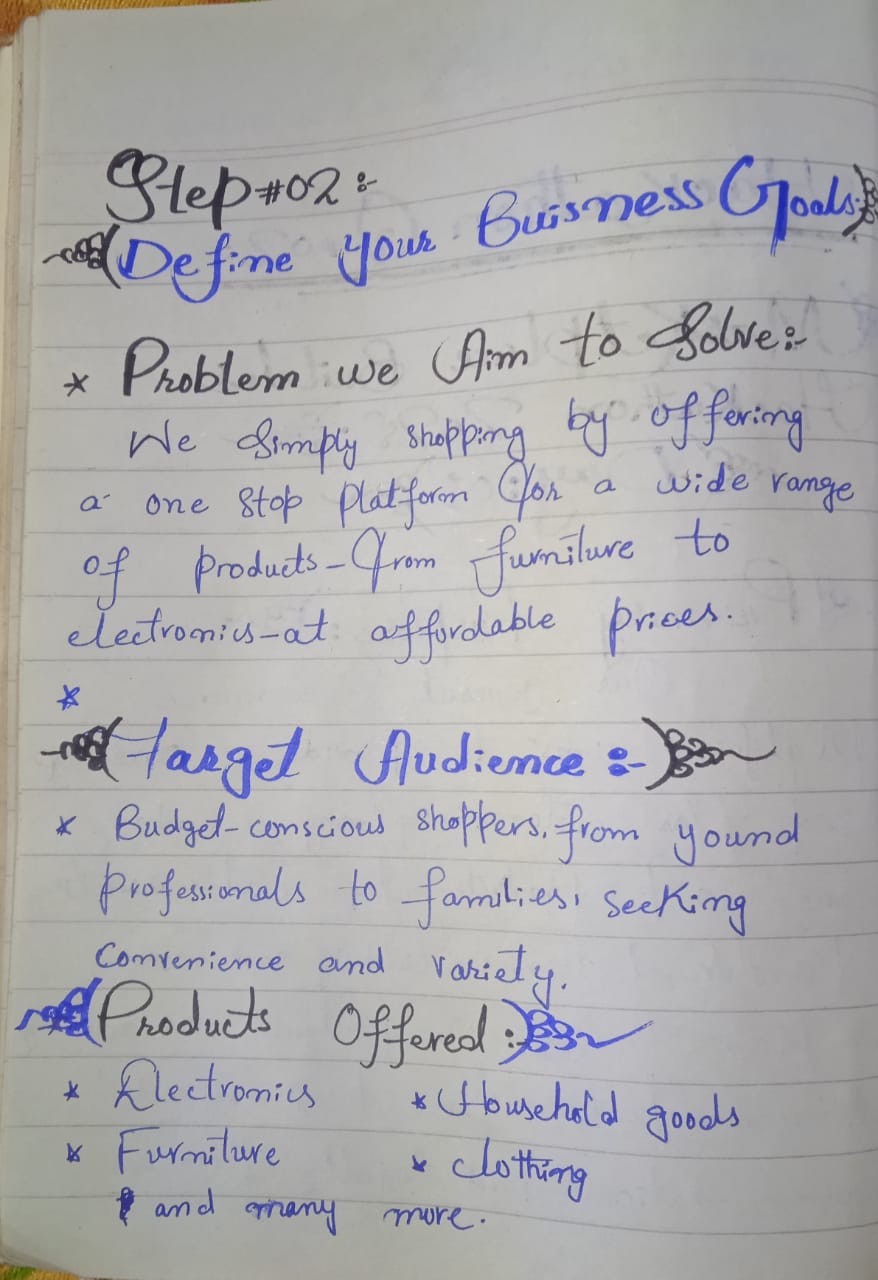 Step #02:-
(Define your Buisness Goals:)
* Problem we Aim to Solve:-
We Simply shopping by offering
a one stop platform for a wide range
of products - from furniture to
electronics - at affordable prices.
*
(Target Audience :-)
* Budget-conscious shoppers, from yound
professionals to families, seeking
convenience and variety.
(Products Offered:-)
* Electronics * Household goods
* Furniture * clothing
and many more.